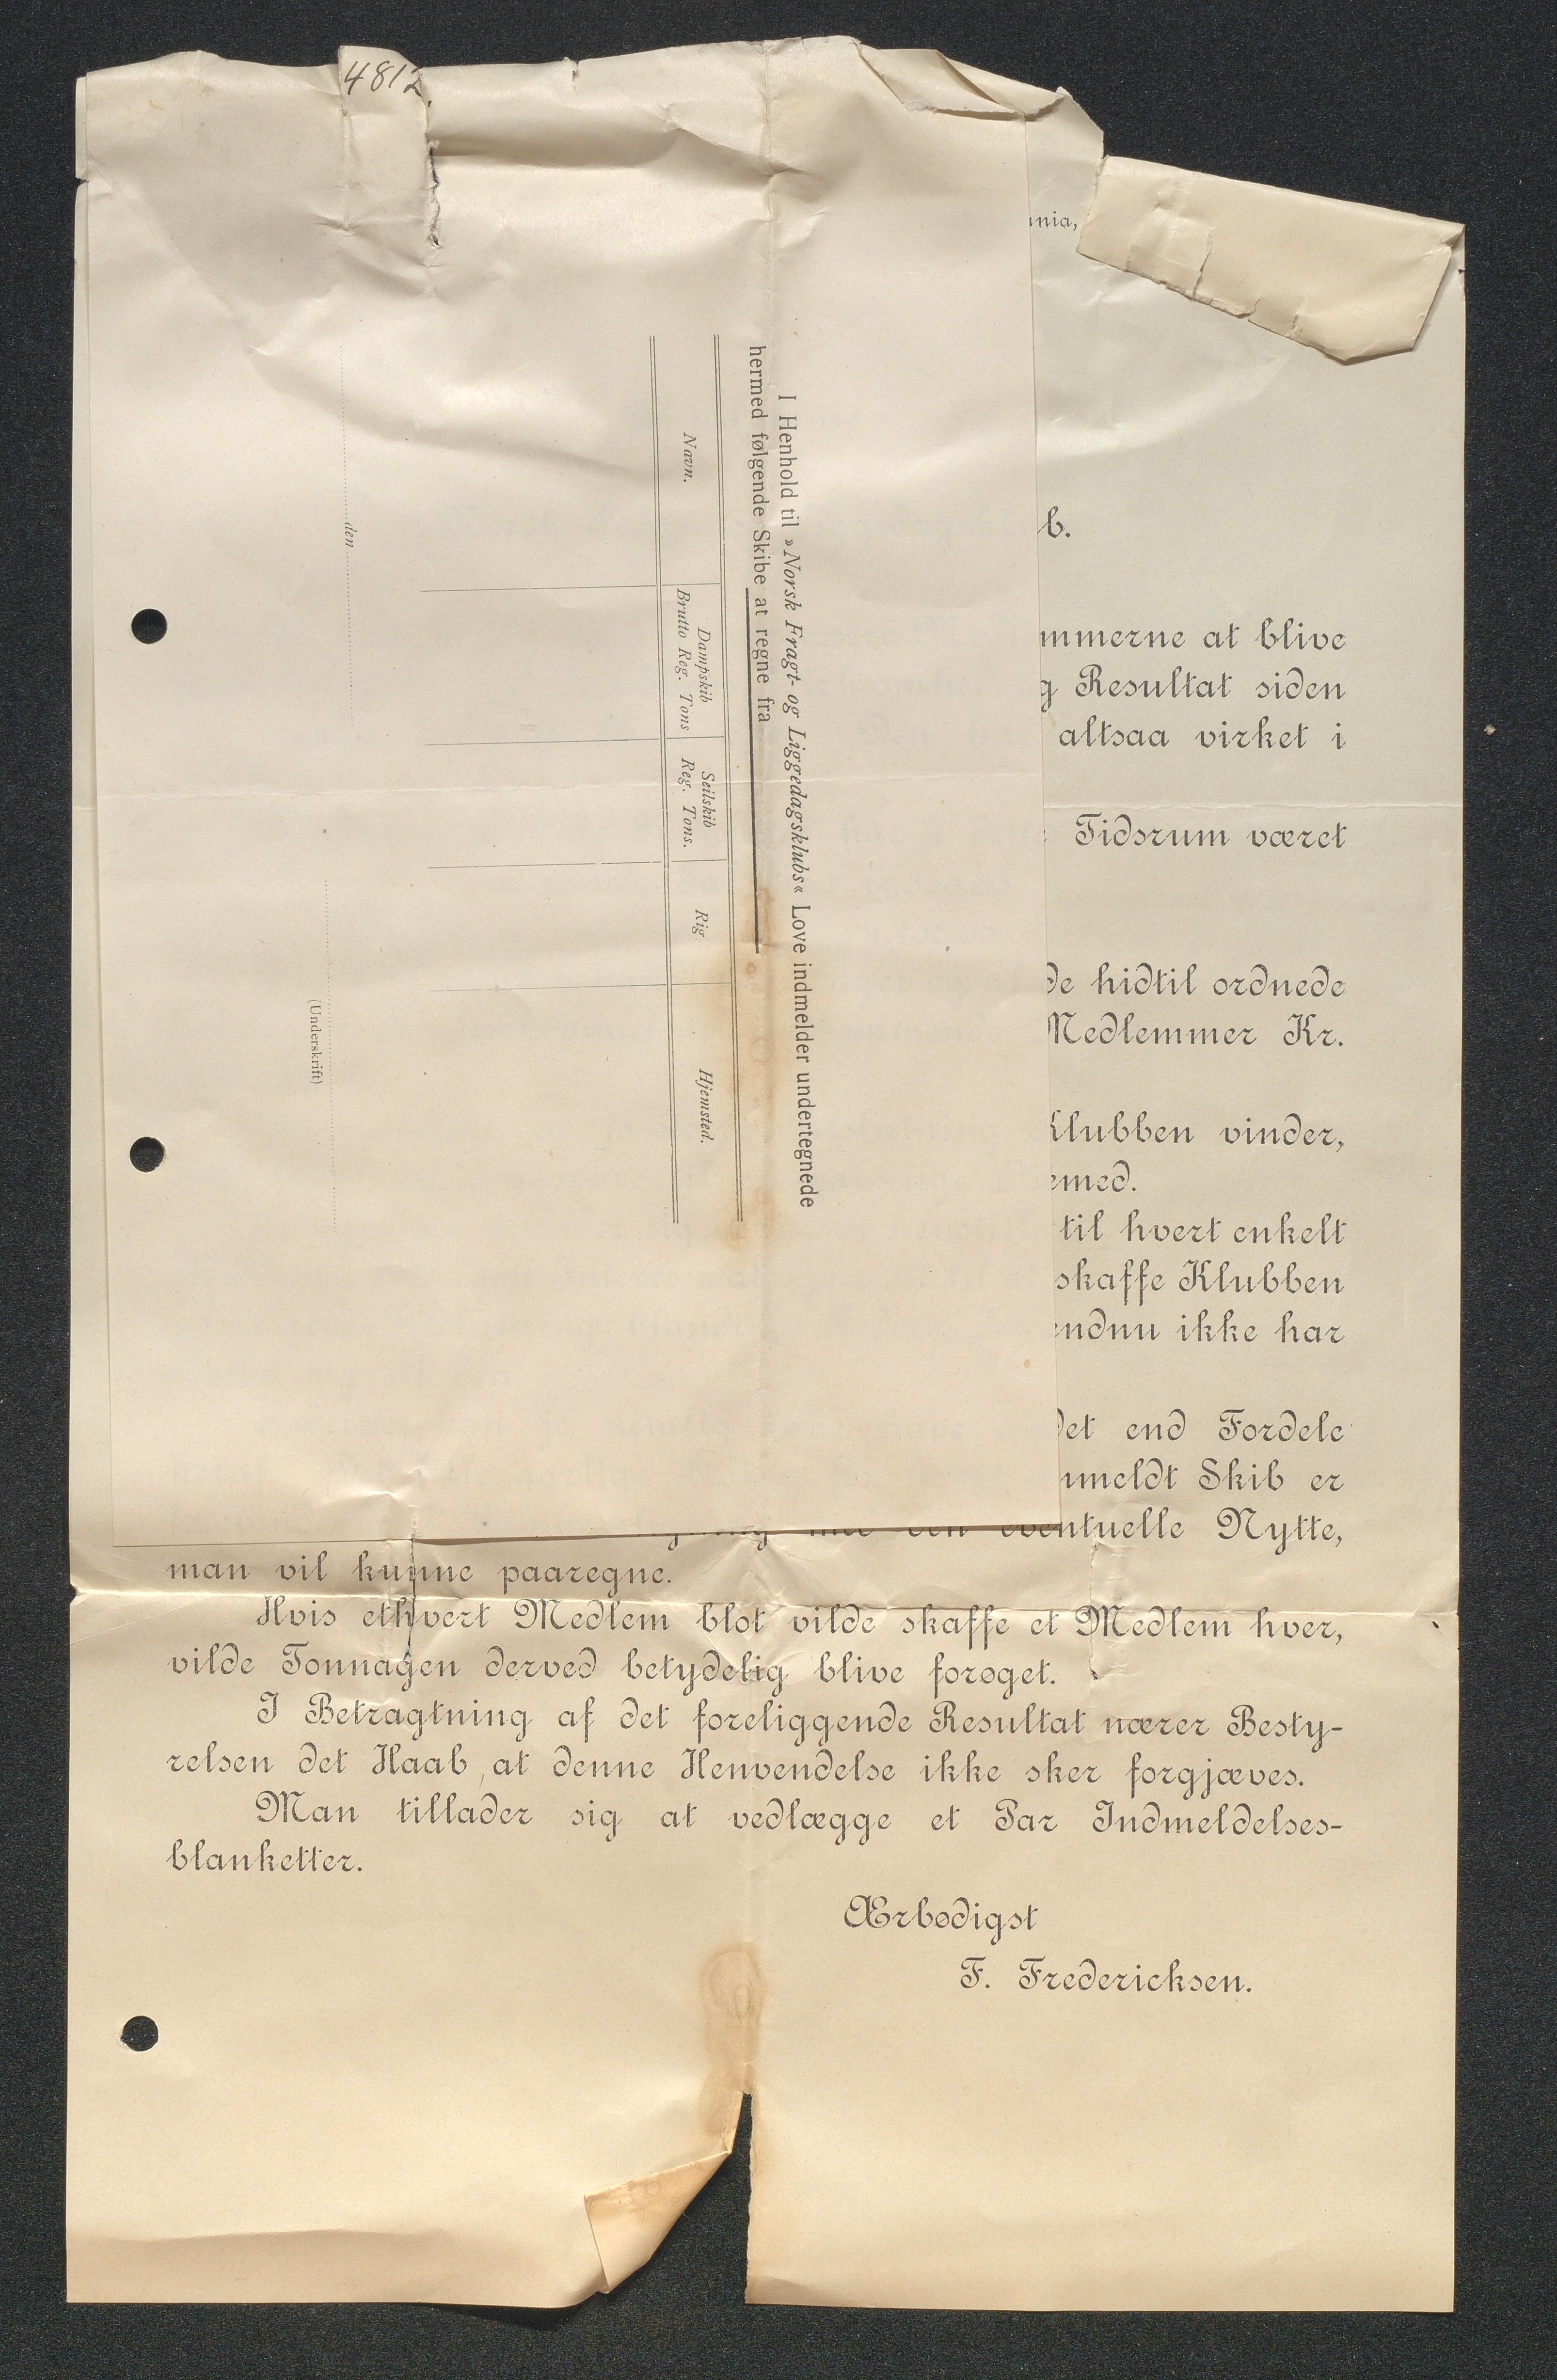 4812.
I Henhold til »Norsk Fragt- og Liggedagsklubs« Love indmelder undertegnede
hermed følgende Skibe at regne fra
Navn.
Dampskib
Brutto Reg. Tons
Seilskib
Reg. Tons.
Rig
Hjemsted.
den
(Underskrift)
nia,
b.
mmerne at blive
g Resultat siden
altsaa virket i
Tidsrum været
de hidtil ordnede
Medlemmer Kr.
Klubben vinder,
emed.
til hvert enkelt
skaffe Klubben
endnu ikke har
det end Fordele
nmeldt Skib er
eventuelle Nytte,
man vil kunne paaregne.
Hvis ethvert Medlem blot vilde skaffe et Medlem hver,
vilde Tonnagen derved betydelig blive forøget.
I Betragtning af det foreliggende Resultat nærer Besty-
relsen det Haab, at denne Henvendelse ikke sker forgjæves.
Man tillader sig at vedlægge et Par Indmeldelses-
blanketter.
Ærbødigst
F. Fredericksen.